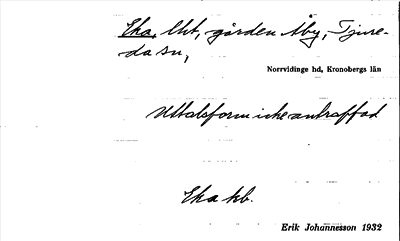 Eka, lht, gården Åby, Tjure-
da sn,
Norrvidinge hd, Kronobergs län
Uttalsform icke anträffad
Eka kb.
Erik Johannesson 1932